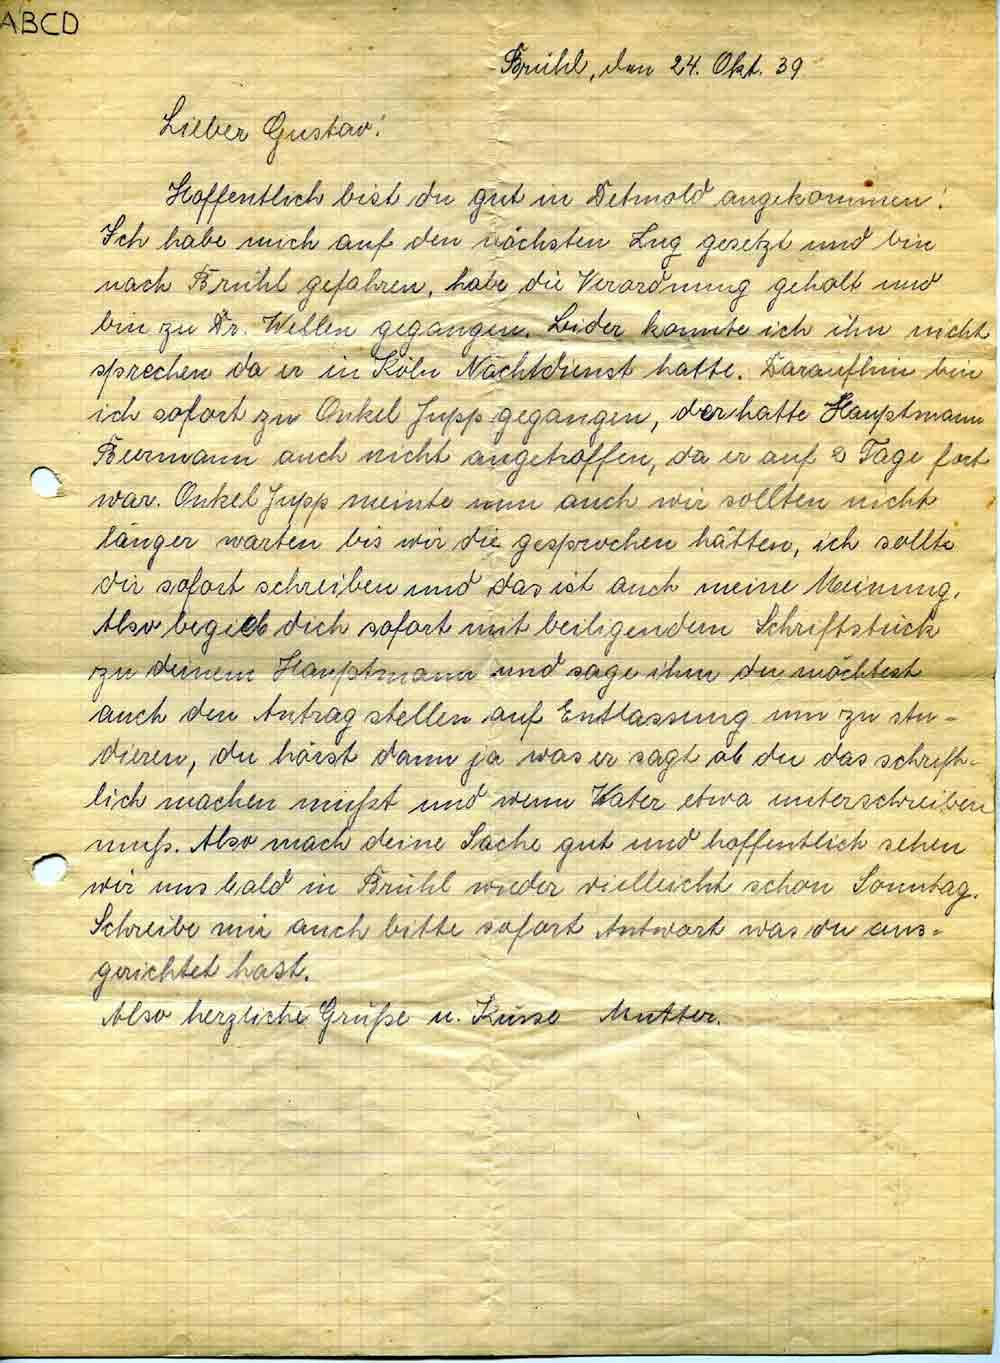 ABCD
Brühl, den 24. Okt. 39
Lieber Gustav!
Hoffentlich bist du gut in Detmold angekommen!
Ich habe mich auf den nächsten Zug gesetzt und bin
nach Brühl gefahren, habe die Verordnung geholt und
bin zu Dr. Wellen gegangen. Leider konnte ich ihn nicht
sprechen da er in Köln Nachtdienst hatte. Daraufhin bin
ich sofort zu Onkel Jupp gegangen, der hatte Hauptmann
Biermann auch nicht angetroffen, da er auf 2 Tage fort
war. Onkel Jupp meinte nun auch wir sollten nicht
länger warten bis wir die gesprochen hätten, ich sollte
dir sofort schreiben und das ist auch meine Meinung.
Also begieb dich sofort mit beiligendem Schriftstück
zu deinem Hauptmann und sage ihm du möchtest
auch den Antrag stellen auf Entlassung um zu stu-
dieren, du hörst dann ja was er sagt ob du das schrift-
lich machen mußt und wenn Vater etwa unterschreiben
muß. Also mach deine Sache gut und hoffentlich sehen
wir uns bald in Brühl wieder vielleicht schon Sonntag.
Schreibe mir auch bitte sofort Antwort was du aus-
gerichtet hast.
Also herzliche Grüße u. Küsse Mutter.